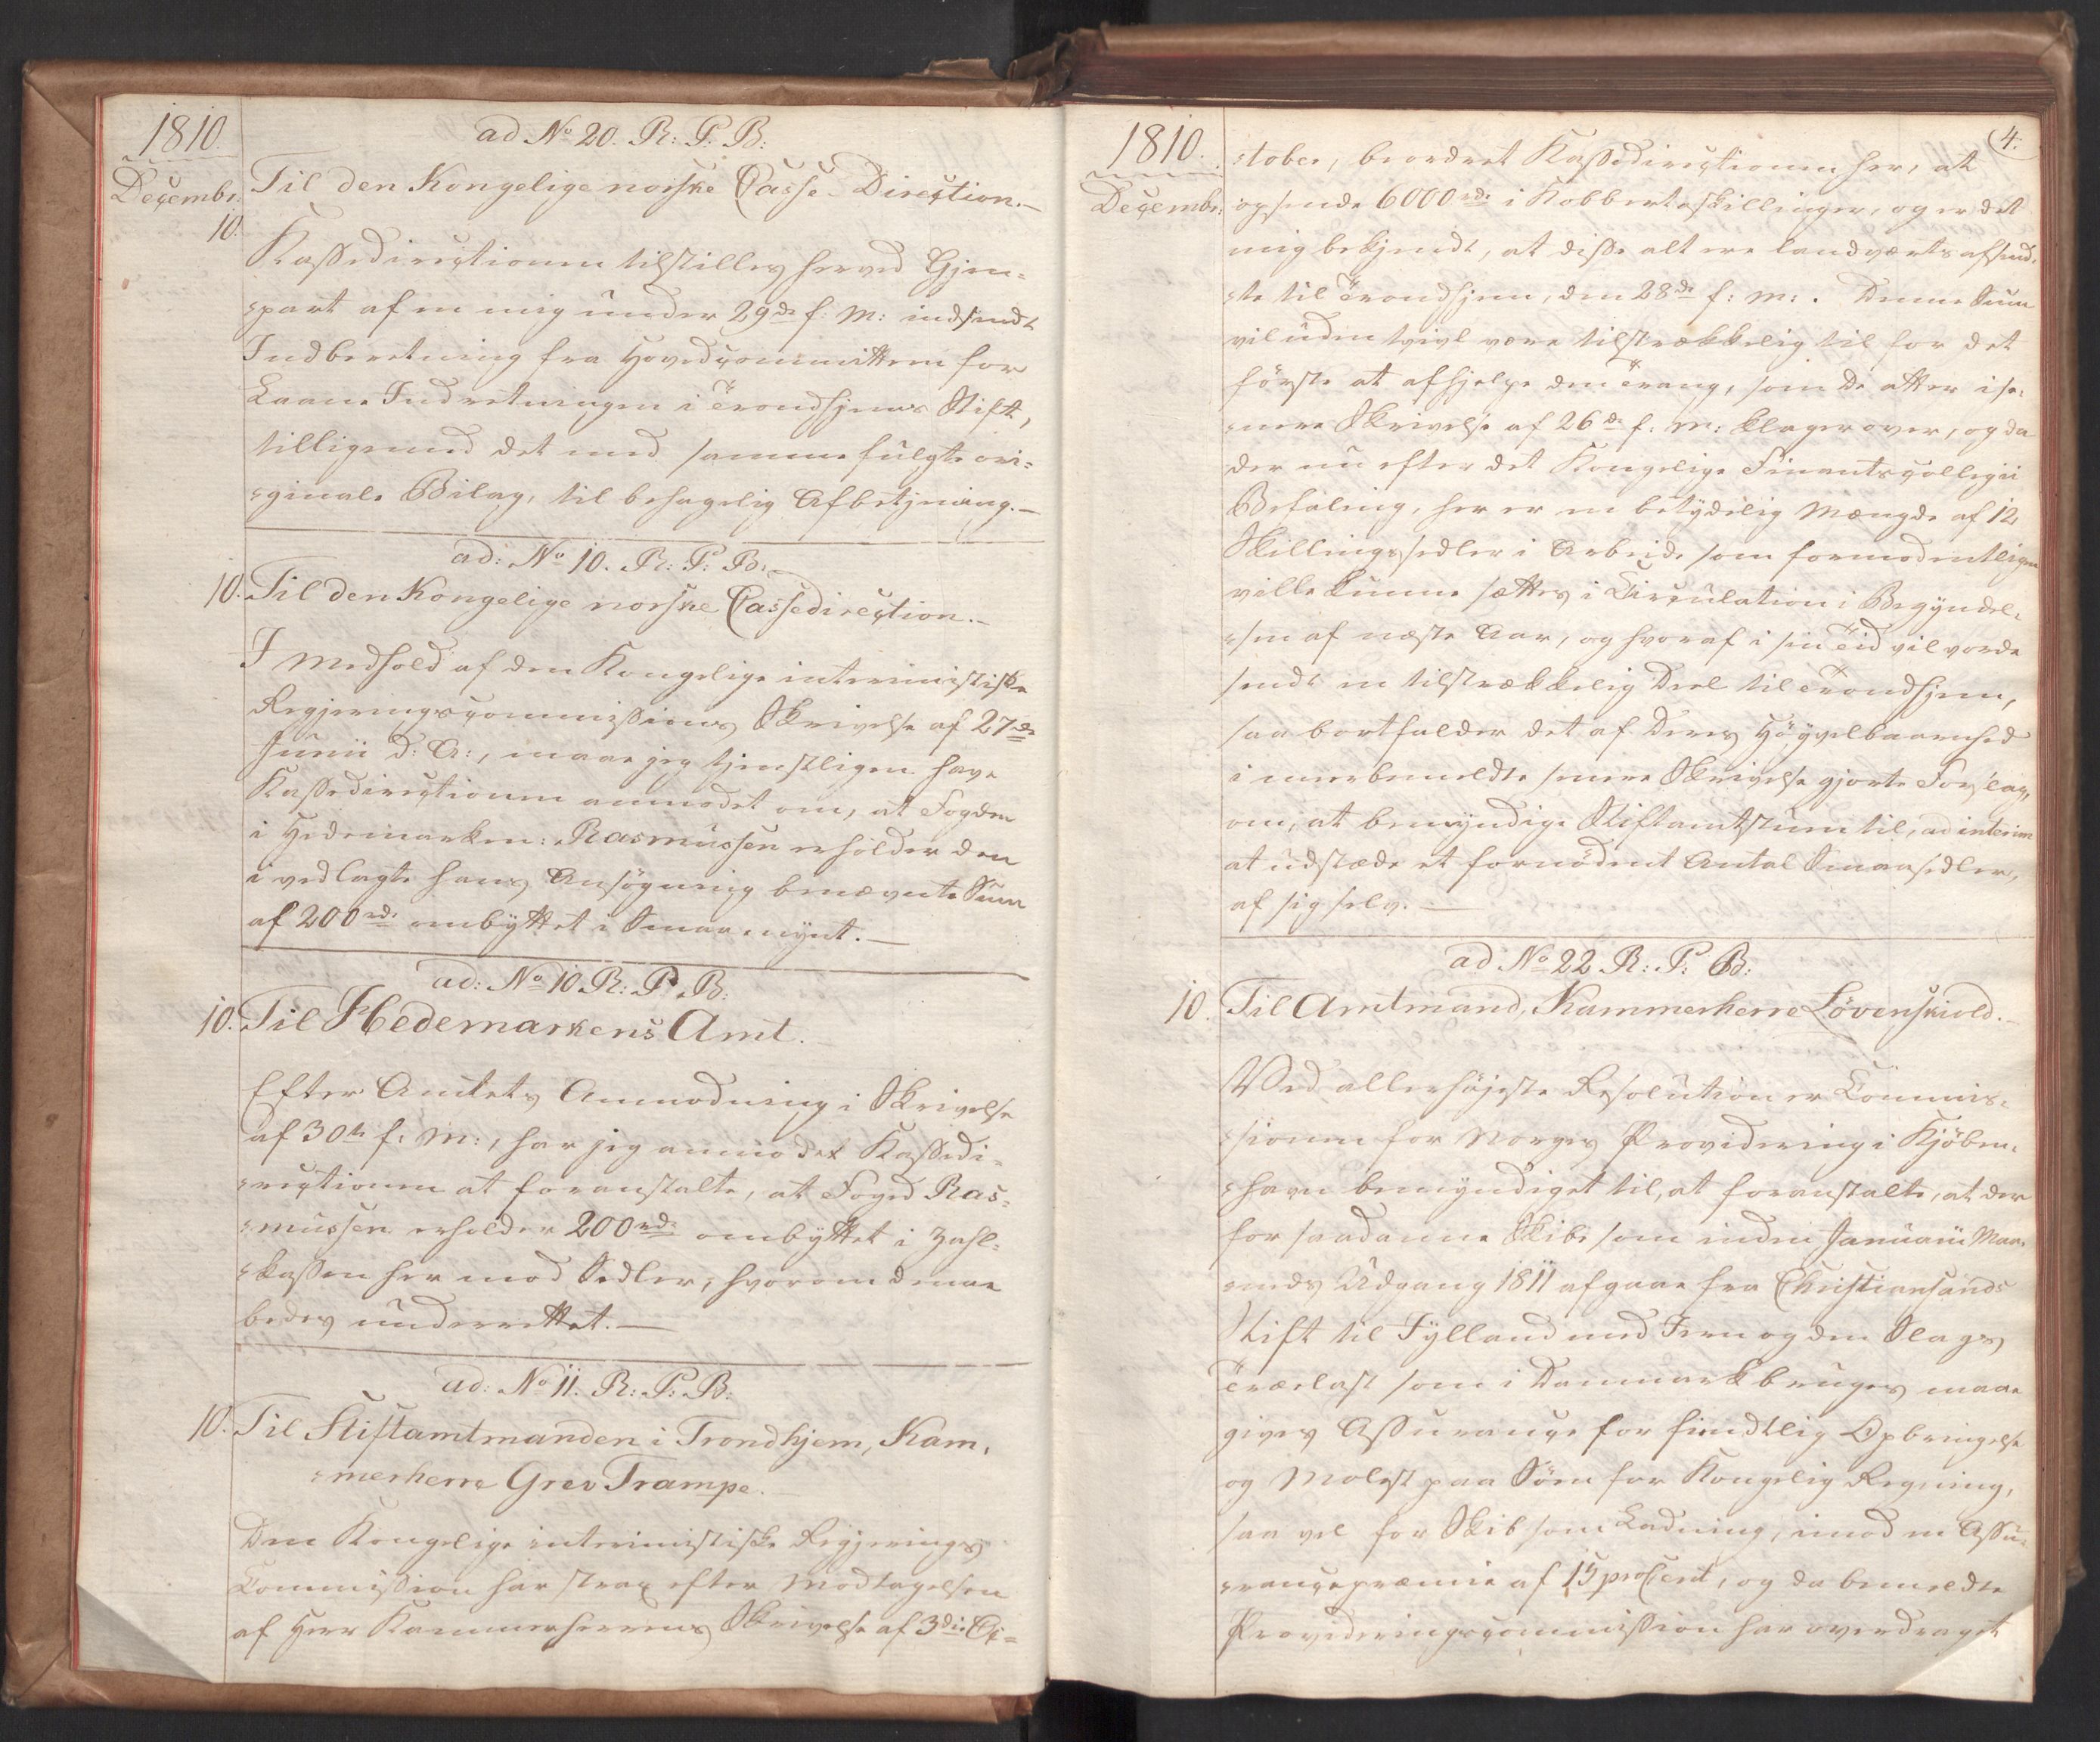 1810.
Decembr.
ad No 20. R: P: B:
Til den Kongelige norske Casse-Direction.—
10.
Kassedirectionen tilstilles herved Gjen-
-part af en mig under 29de f: M: indsendt
Indberetning fra Hovedcommitteen for
Laane-Indretningen i Trondhjems Stift,
tilligemed det med samme fulgte ori-
-ginale Bilag, til behagelig Afbetjening.—
ad: No 10. R: P: B:
10. Til den Kongelige norske Cassedirection.—
I Medhold af den Kongelige interimistiske
Regjeringscommissions Skrivelse af 27de
Junii d: A:, maae jeg tjenstligen have
Kassedirectionen anmodet om, at Fogden
i Hedemarken: Rasmussen erholder den
i vedlagte hans Ansøgning benævnte Sum
af 200 rd: ombyttet i Smaamynt.—
ad: No 10 R: P. B:
10. Til Hedemarkens Amt.
Efter Amtets Anmodning i Skrivelse
af 30te f: M:, har jeg anmodet Kassedi-
-rectionen at foranstalte, at Foged Ras-
-mussen erholder 200 rd: ombyttet i Zahl-
-kassen her mod Sedler, hvorom denne
bedes underrettet.—
ad: No 11. R: P: B:
10. Til Stiftamtmanden i Trondhjem, Kam-
-merherre Grev Trampe.
Den Kongelige interimistiske Regjerings
Commission har strax efter Modtagelsen
af Herr Kammerherrens Skrivelse af 3die Oc-
4.
1810.
Decembr:
-tober, beordret Kassedirectionen her, at
opsende 6000 rd: i Kobberskillinger, og er det
mig bekjendt, at disse alt ere landværts afsend-
-te til Trondhjem, den 28de f: M:. Denne Sum
vil uden tvivl være tilstrækkelig til for det
første at afhjelpe den Trang, som De atter i se-
-nere Skrivelse af 26de f: M: klager over, og da
der nu efter det Kongelige Finantscollegii
Befaling, her er en betydelig Mængde af 12
Skillingssedler i Arbeide som formodentligen
ville kunne sættes i Circulation i Begyndel-
-sen af næste Aar, og hvoraf i sin Tid vil vorde
sendt en tilstrækkelig Deel til Trondhjem,
saa bortfalder det af Deres Høyvelbaarenhed
i meerbemeldte senere Skrivelse gjorte Forslag,
om, at bemyndige Stiftamtstuen til, ad interim
at udstæde et fornødent Antal Smaasedler,
af sig selv.—
ad No 22 R: P: B:
10. Til Amtmand, Kammerherre Løvenskiold.—
Ved allerhøjeste Resolution er Commis-
-sionen for Norges Providering i Kjøben-
-havn bemyndiget til, at foranstalte, at der
for saadanne Skibe som inden Januarii Maa-
-neds Udgang 1811 afgaae fra Christiansands
Stift til Jylland med Jern og den Slags
Trælast som i Danmark bruges maae
gives Assurance for fiendtlig Opbringelse
og Molest paa Søen for Kongelig Regning,
saa vel for Skib som Ladning, imod en Assu-
-rancepræmie af 15 proCent, og da bemeldte
Provideringscommission har overdraget